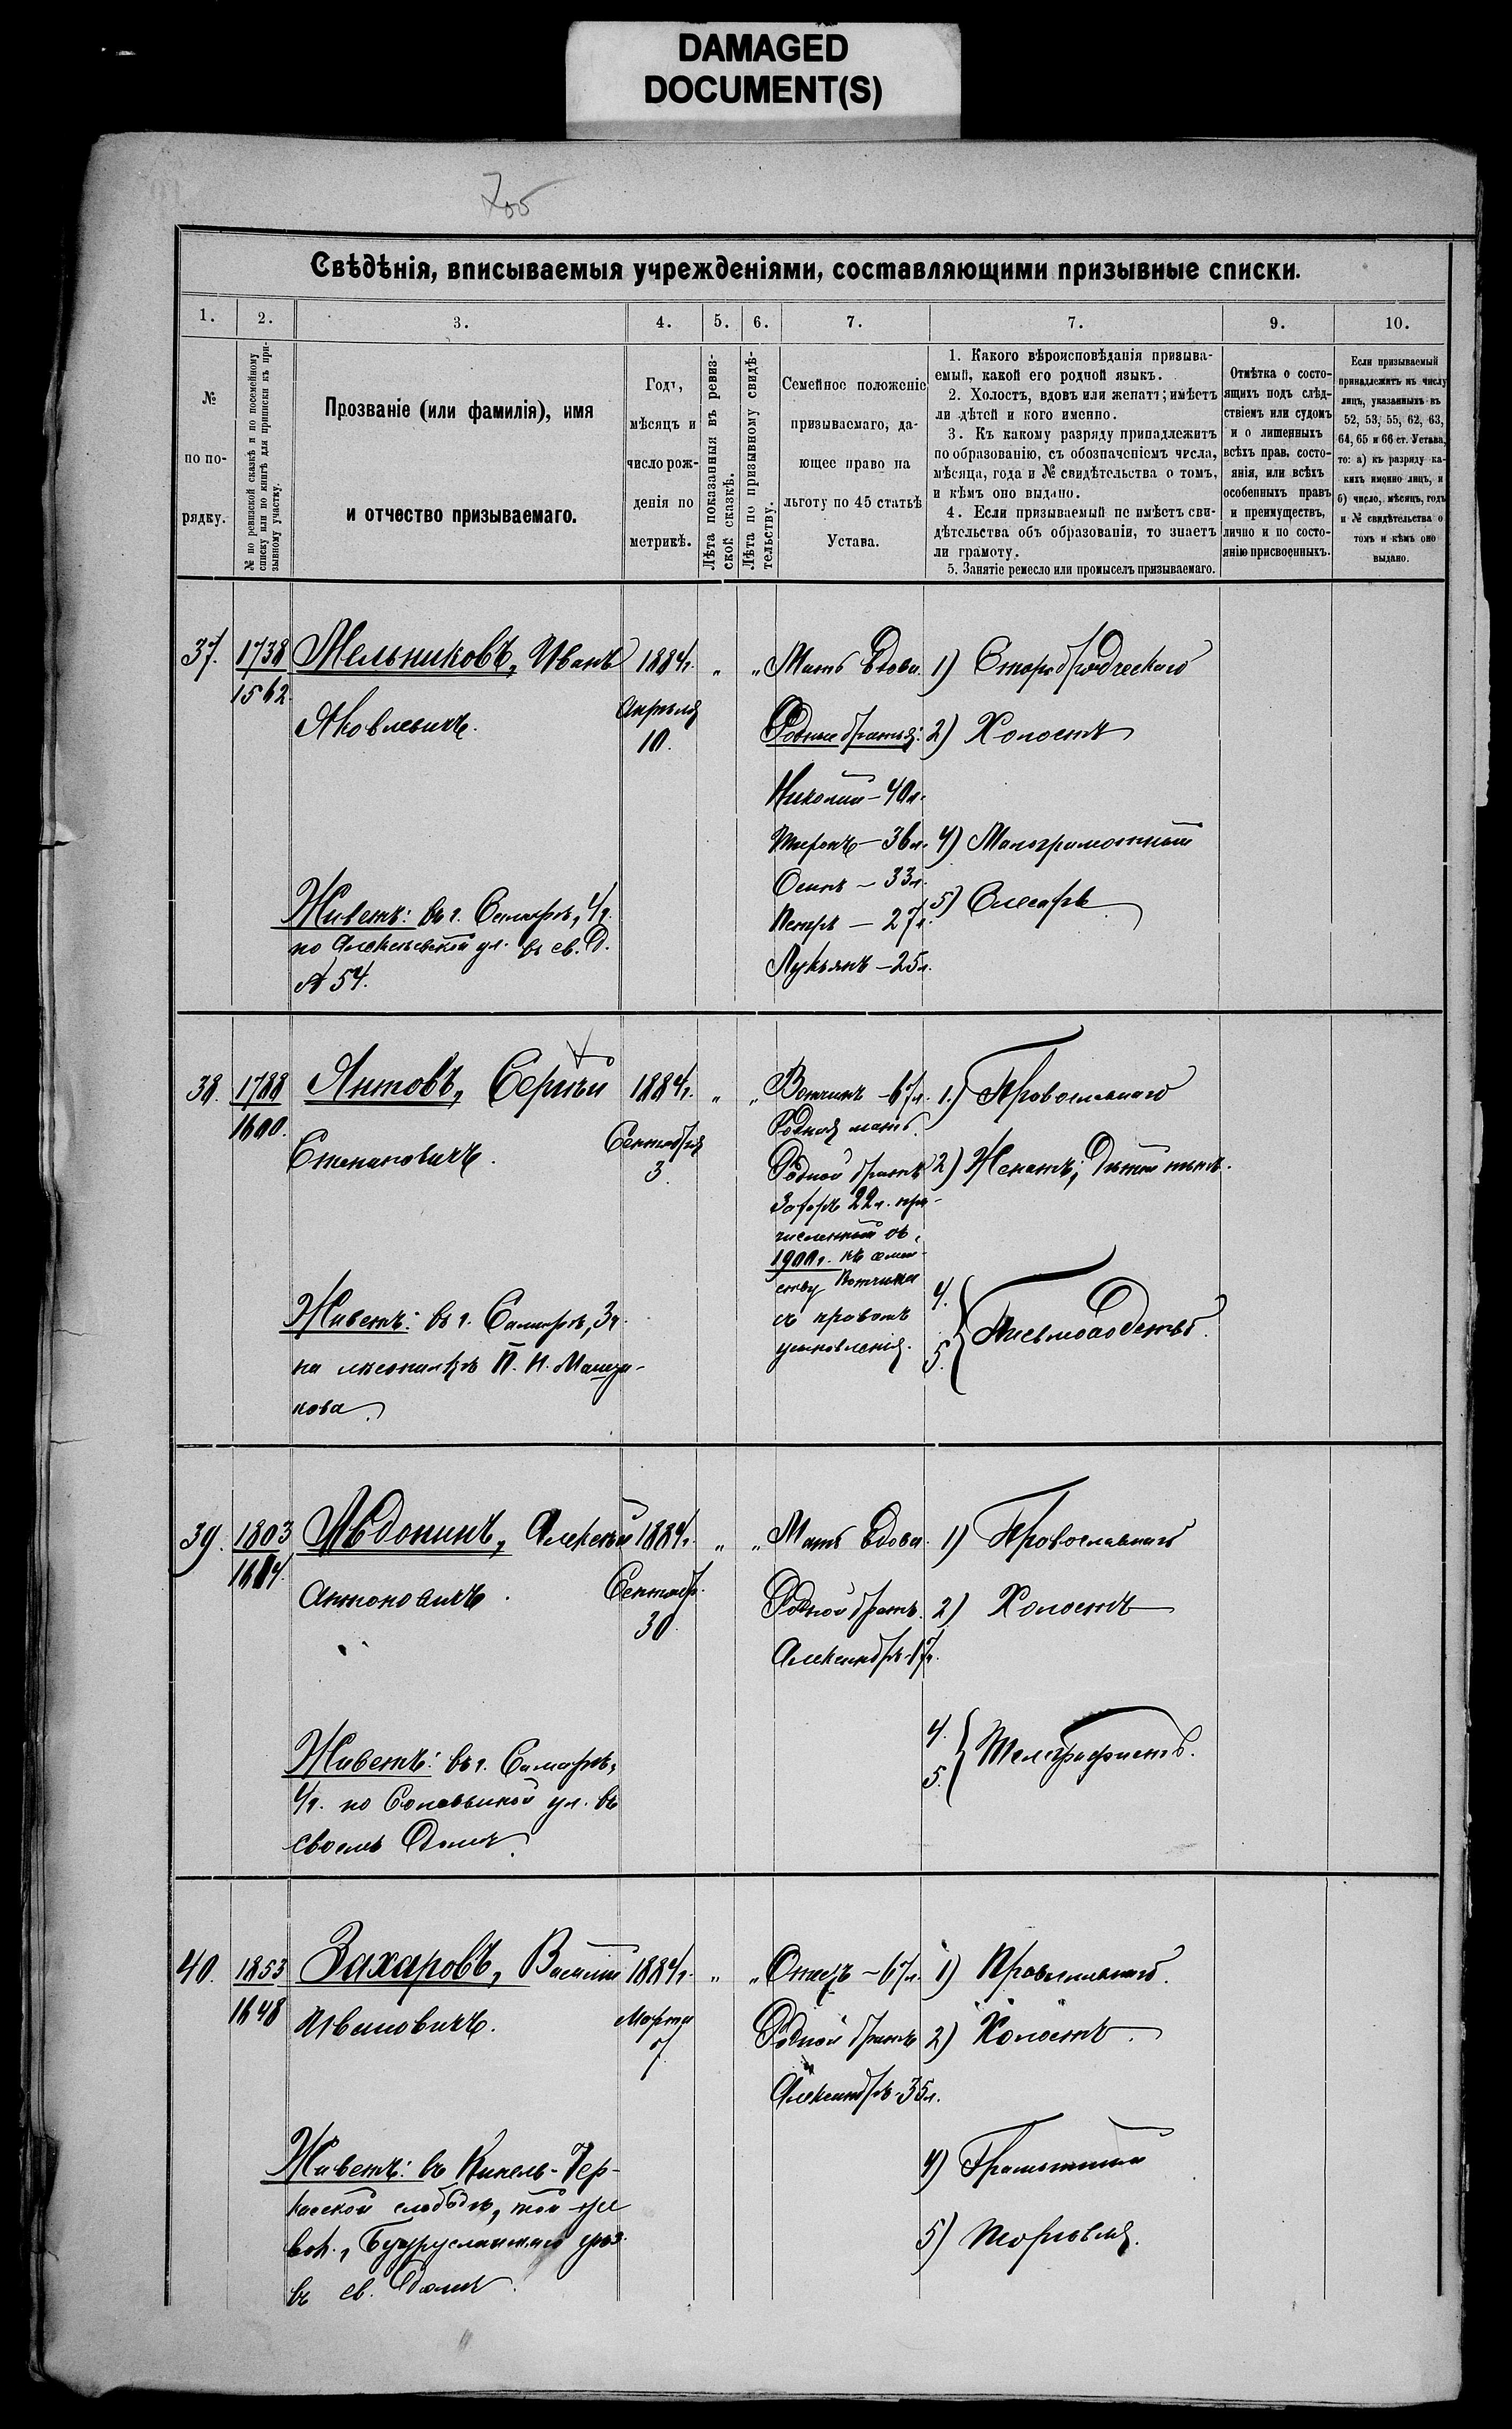 DAMAGED
DOCUMENT(S)
Свѣдѣнія, вписываемыя учрежденіями, составляющими призывные списки.
1.
2.
3.
4.
5.
6.
7.
7.
9.
10.
№
по по-
рядку.
№ по ревизской сказкѣ и по посемейному
списку или по книгѣ для приписки къ при-
зывному участку.
Прозваніе (или фамилія), имя
и отчество призываемаго.
Годъ,
мѣсяцъ и
число рож-
денія по
метрикѣ.
Лѣта показанныя въ ревиз-
ской сказкѣ.
Лѣта по призывному свидѣ-
тельству.
Семейное положеніе
призываемаго, да-
ющее право на
льготу по 45 статьѣ
Устава.
1. Какого вѣроисповѣданія призыва-
емый, какой его родной языкъ.
2. Холостъ, вдовъ или женатъ; имѣетъ
ли дѣтей и кого именно.
3. Къ какому разряду принадлежитъ
по образованію, съ обозначеніемъ числа,
мѣсяца, года и № свидѣтельства о томъ,
и кѣмъ оно выдано.
4. Если призываемый не имѣетъ сви-
дѣтельства объ образованіи, то знаетъ
ли грамоту.
5. Занятіе ремесло или промыселъ призываемаго.
Отмѣтка о состо-
ящихъ подъ слѣд-
ствіемъ или судомъ
и о лишенныхъ
всѣхъ прав, состо-
янія, или всѣхъ
особенныхъ правъ
и преимуществъ,
лично и по состо-
янію присвоенныхъ.
Если призываемый
принадлежитъ къ числу
лицъ, указанныхъ въ
52, 53, 55, 62, 63,
64, 65 и 66 ст. Устава,
то: а) къ разряду ка-
кихъ именно лицъ, и
б) число, мѣсяцъ, годъ
и № свидѣтельства о
томъ и кѣмъ оно
выдано.
37.
1738
1562.
Мельниковъ, Иванъ
Яковлевичъ.
Живетъ: въ г. Самарѣ, 4 ч.
по Алексѣевской ул. въ св. д.
№ 54.
1884 г.
Апрѣля
10.
"
"
Мать вдова.
Родные братья:
Николай – 40 л.
Тиронъ – 36 л.
Осипъ – 33 л.
Петръ – 27 л.
Лукьянъ – 25 л.
1) Старобрядческаго
2) Холостъ
4) Малограмотный
5) Слесарь
38.
1788
1600.
Антовъ, Сергѣй
Степановичъ.
Живетъ: въ г. Самарѣ, 3 ч.
на лѣсопилкѣ П. И.
1884 г.
Сентября
3.
"
"
Вотчимъ – 67 л.
Родная мать.
Родной братъ
22 л. при-
численный въ
1900 г. къ семей-
ству вотчима
съ правомъ
усыновленія.
1.) Православнаго
2) Женатъ; дѣтей нѣтъ.
4.
5.
Письмоводство.
39.
1803
1614.
Авдонинъ, Алексѣй
Антоновичъ.
Живетъ: въ г. Самарѣ,
4 ч. по ул. въ
своемъ домѣ.
1884 г.
Сентябр.
30.
"
"
Мать вдова.
Родной братъ.
Александръ – 17 л.
1) Православнаго
2) Холостъ
4.
5.
Телеграфистъ.
40.
1853
1648
Захаровъ, Василій
Ивановичъ.
Живетъ: въ Кинель-Чер-
касской слободѣ, той же
вол., Бугурусланскаго уѣз.
въ св. домѣ.
1884 г.
Марта
7.
"
"
Отецъ – 67 л.
Родной братъ
Александръ – 35 л.
1) Православнаго.
2) Холостъ.
4) Грамотный
5) Торговля.